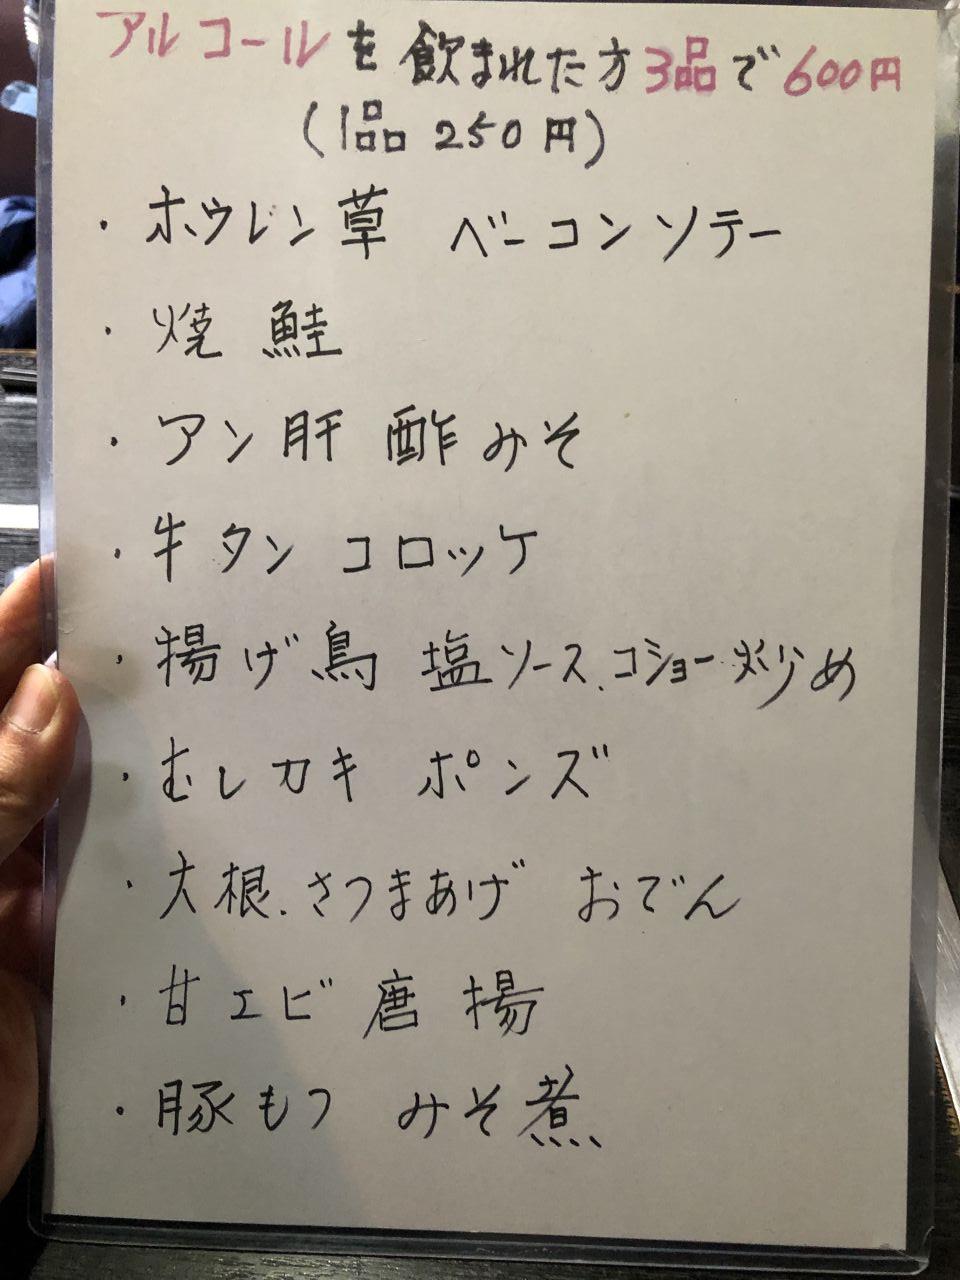 アルコールを飲まれた方3品で600円
(1品 250円)
・ホウレン草 ベーコンソテー
・焼鮭
・アン肝 酢みそ
・牛タン コロッケ
・揚げ鳥 塩ソース、コショー炒め
・むしカキ ポンズ
・大根、さつまあげ おでん
・甘エビ唐揚
・豚もつ みそ煮